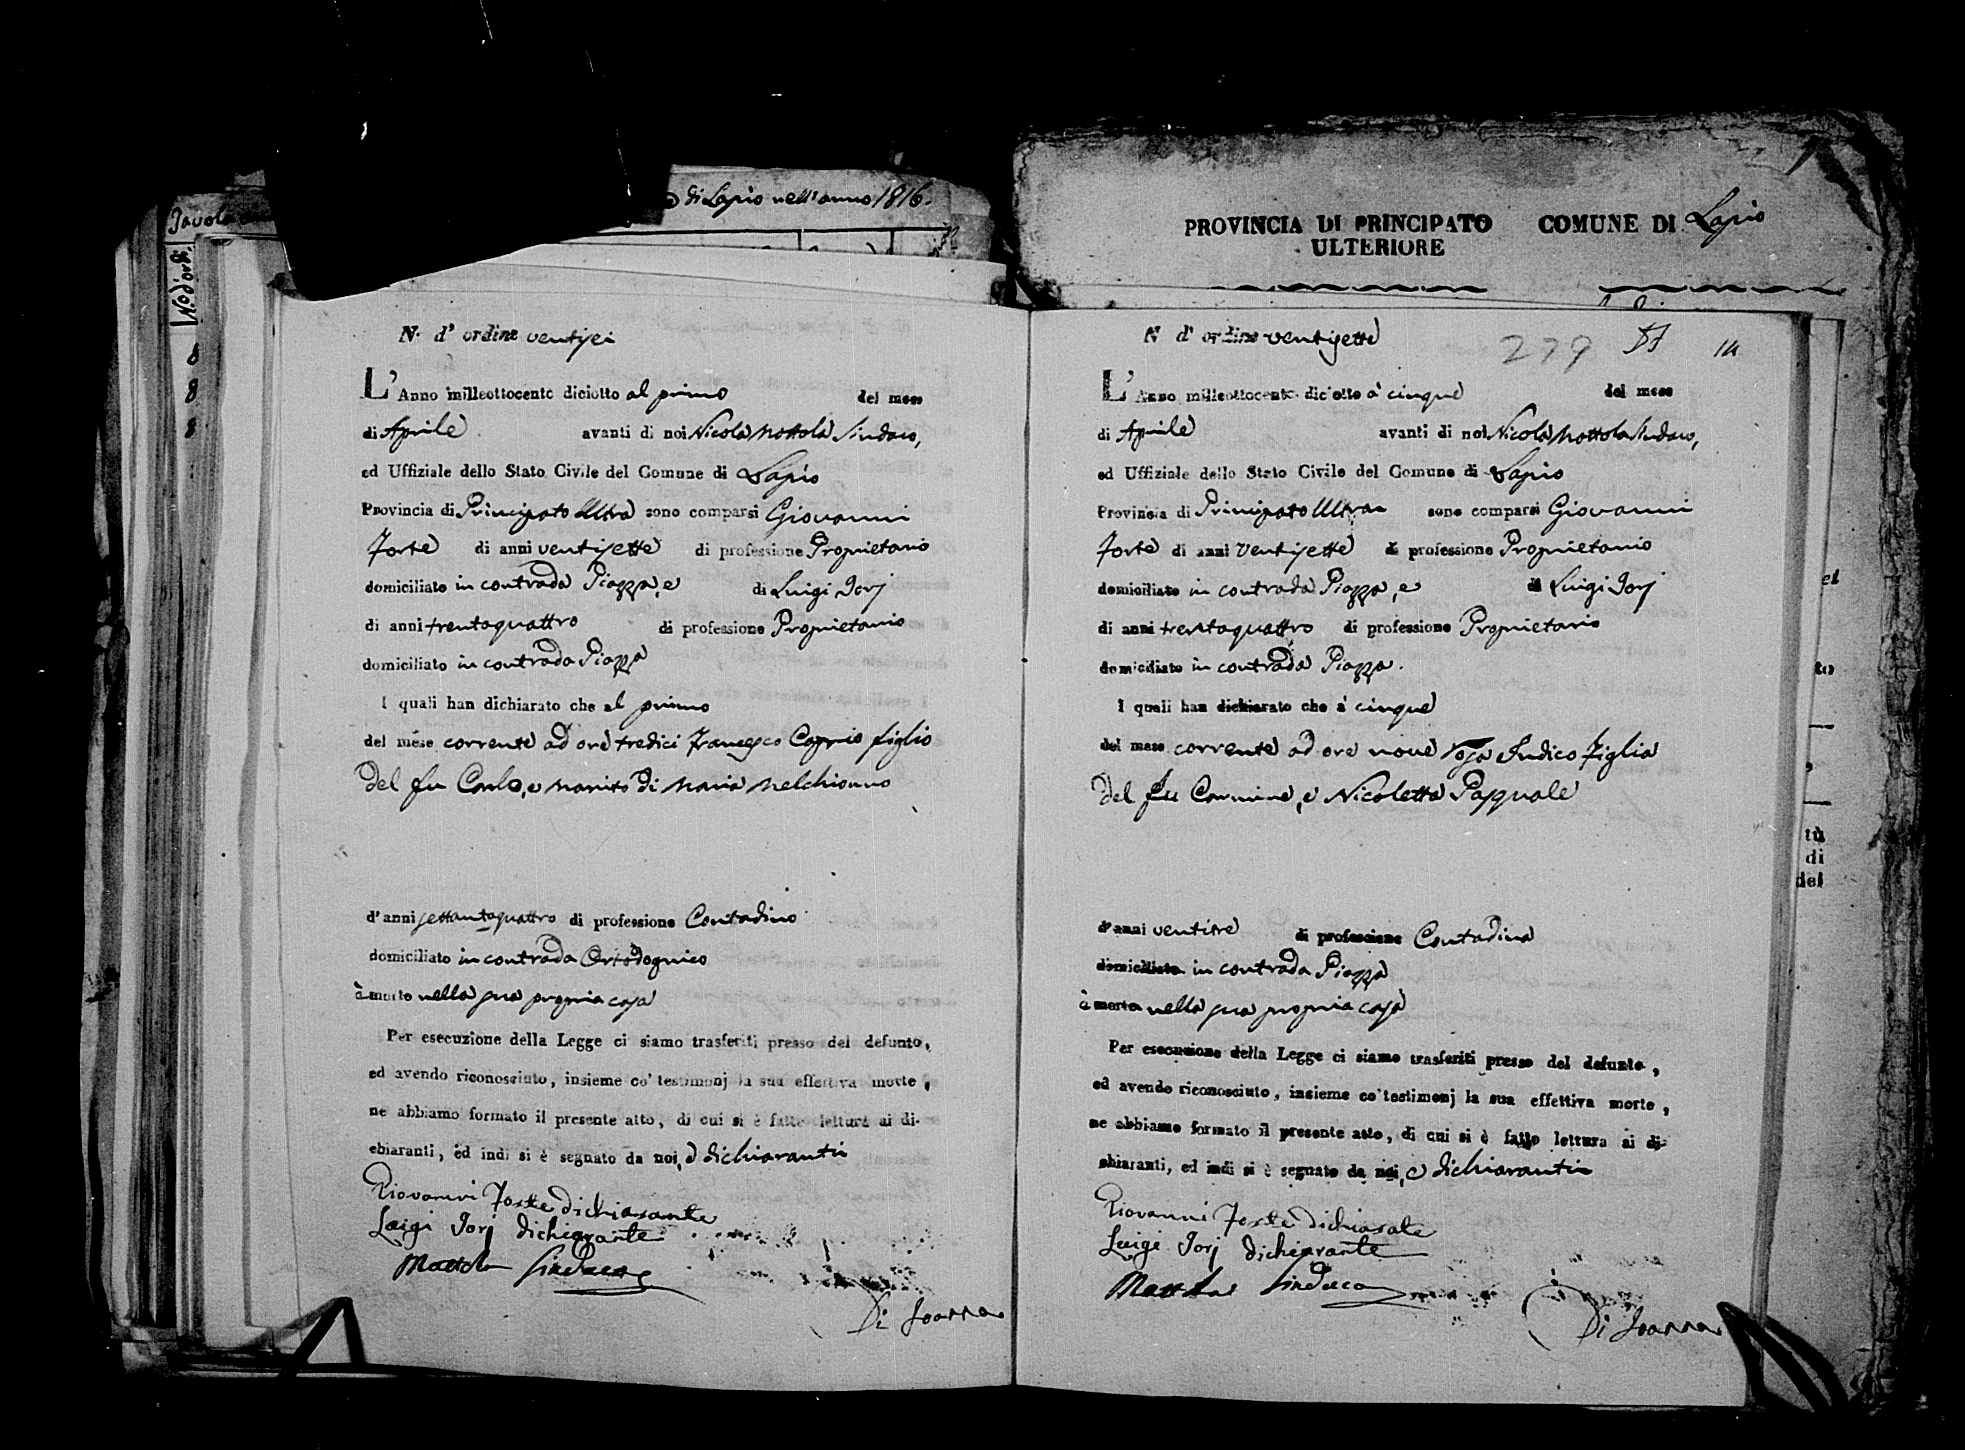 di Lapio nell'anno 1816.
N. d'ordi.
8
8
8
N. d' ordine ventisei
L'Anno milleottocento diciotto al primo del mese
di Aprile avanti di noi Nicola Mottola Sindaco,
ed Uffiziale dello Stato Civile del Comune di Lapio
Provincia di Principato Ultra sono comparsi Giovanni
Forte di anni ventisette di professione Proprietario
domiciliato in contrada Piazza, e di Luigi Iorj
di anni trentaquattro di professione Proprietario
domiciliato in contrada Piazza
I quali han dichiarato che al primo
del mese corrente ad ore tredici Francesco Caprio figlio
del fu Carlo, e marito di Maria Melchionno
d'anni settantaquattro di professione Contadino
domiciliato in contrada
à morto nella sua propria casa
Per esecuzione della Legge ci siamo trasferiti presso del defunto,
ed avendo riconosciuto, insieme co' testimonj la sua effettiva morte,
ne abbiamo formato il presente atto, di cui si è fatto lettura ai di-
chiaranti, ed indi si è segnato da noi, e dichiaranti
Giovanni Forte dichiarante
Luigi Iorj dichiarante
Mottola Sindaco
Di Ioanna
PROVINCIA DI PRINCIPATO COMUNE DI Lapio
ULTERIORE
N d' ordine ventisette
279 14
L'Anno milleottocento diciotto à cinque del mese
di Aprile avanti di noi Nicola Mottola Sindaco,
ed Uffiziale dello Stato Civile del Comune di Lapio
Provincia di Principato Ultra sono comparsi Giovanni
Forte di anni ventisette di professione Proprietario
domiciliato in contrada Piazza, e di Luigi Iorj
di anni trentaquattro di professione Proprietario
domiciliato in contrada Piazza.
I quali han dichiarato che à cinque
del mese corrente ad ore nove Rosa Iudico figlia
del fu Carmine, e Nicoletta Pasquale
d'anni ventitre di professione Contadina
domiciliata in contrada Piazza
à morta nella sua propria casa
Per esecuzione della Legge ci siamo trasferiti presso del defunto,
ed avendo riconosciuto, insieme co' testimonj la sua effettiva morte,
ne abbiamo formato il presente atto, di cui si è fatto lettura ai di-
chiaranti, ed indi si è segnato da noi, e dichiaranti
Giovanni Forte dichiarate
Luigi Iorj dichiarante
Mottola Sindaco
Di Ioanna
to
tù
di
del